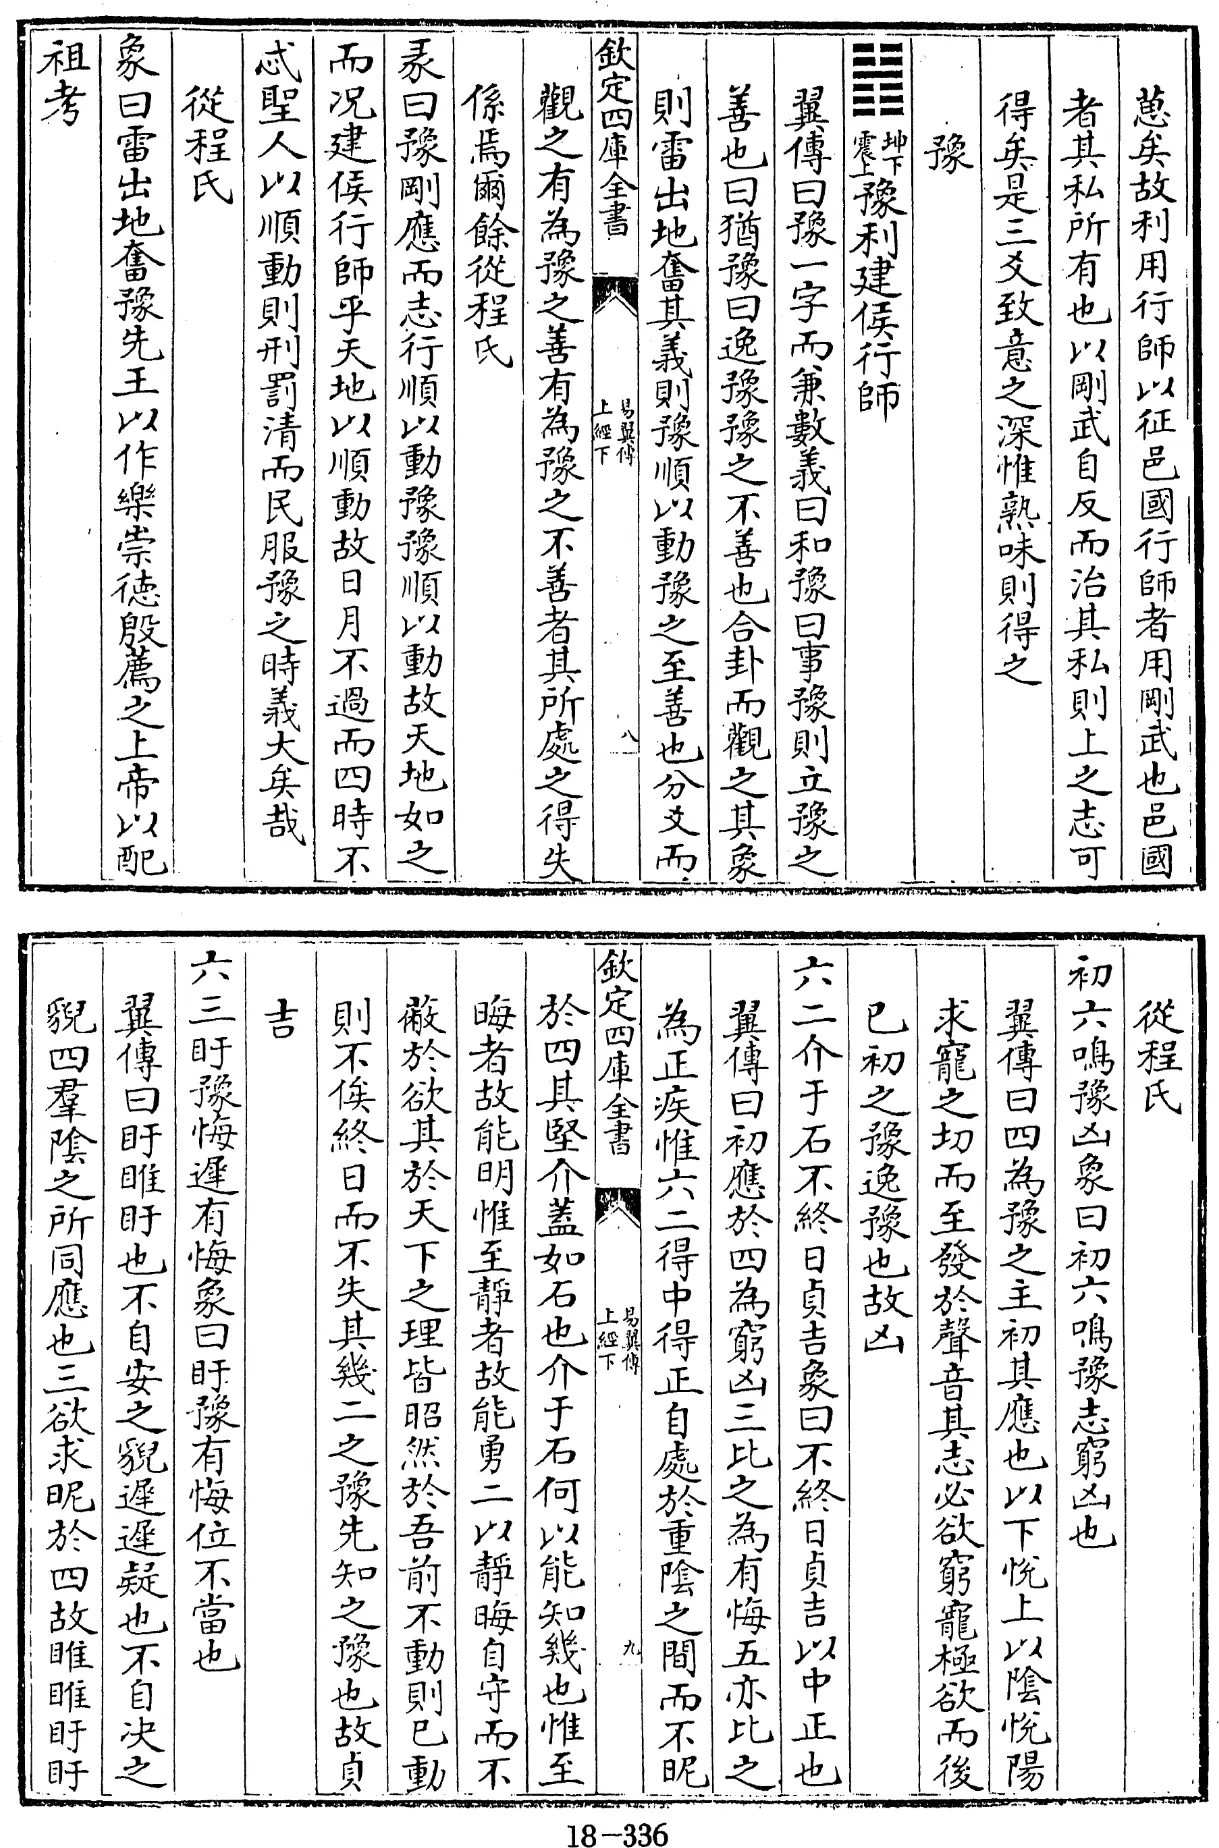 葸矣故利用行師以征邑國行師者用剛武也邑國
者其私所有也以剛武自反而治其私則上之志可
得矣是三爻致意之深惟熟味則得之
豫
坤下
震上
豫利建侯行師
翼傳曰豫一字而兼數義曰和豫曰事豫則立豫之
善也曰猶豫曰逸豫豫之不善也合卦而觀之其象
則雷出地奮其義則豫順以動豫之至善也分爻而
欽定四庫全書
易翼傳
上經下
八
觀之有為豫之善有為豫之不善者其所處之得失
係焉爾餘從程氏
彖曰豫剛應而志行順以動豫豫順以動故天地如之
而况建侯行師乎天地以順動故日月不過而四時不
忒聖人以順動則刑罰清而民服豫之時義大矣哉
從程氏
象曰雷出地奮豫先王以作樂崇德殷薦之上帝以配
祖考
從程氏
初六鳴豫凶象曰初六鳴豫志窮凶也
翼傳曰四為豫之主初其應也以下悅上以陰悅陽
求寵之切而至發於聲音其志必欲窮寵極欲而後
已初之豫逸豫也故凶
六二介于石不終日貞吉象曰不終日貞吉以中正也
翼傳曰初應於四為窮凶三比之為有悔五亦比之
為正疾惟六二得中得正自處於重陰之間而不昵
欽定四庫全書
易翼傳
上經下
九
於四其堅介蓋如石也介于石何以能知幾也惟至
晦者故能明惟至靜者故能勇二以靜晦自守而不
蔽於欲其於天下之理皆昭然於吾前不動則已動
則不俟終日而不失其幾二之豫先知之豫也故貞
吉
六三盱豫悔遲有悔象曰盱豫有悔位不當也
翼傳曰盱睢盱也不自安之貌遲遲疑也不自决之
貌四羣陰之所同應也三欲求昵於四故睢睢盱盱
18-336